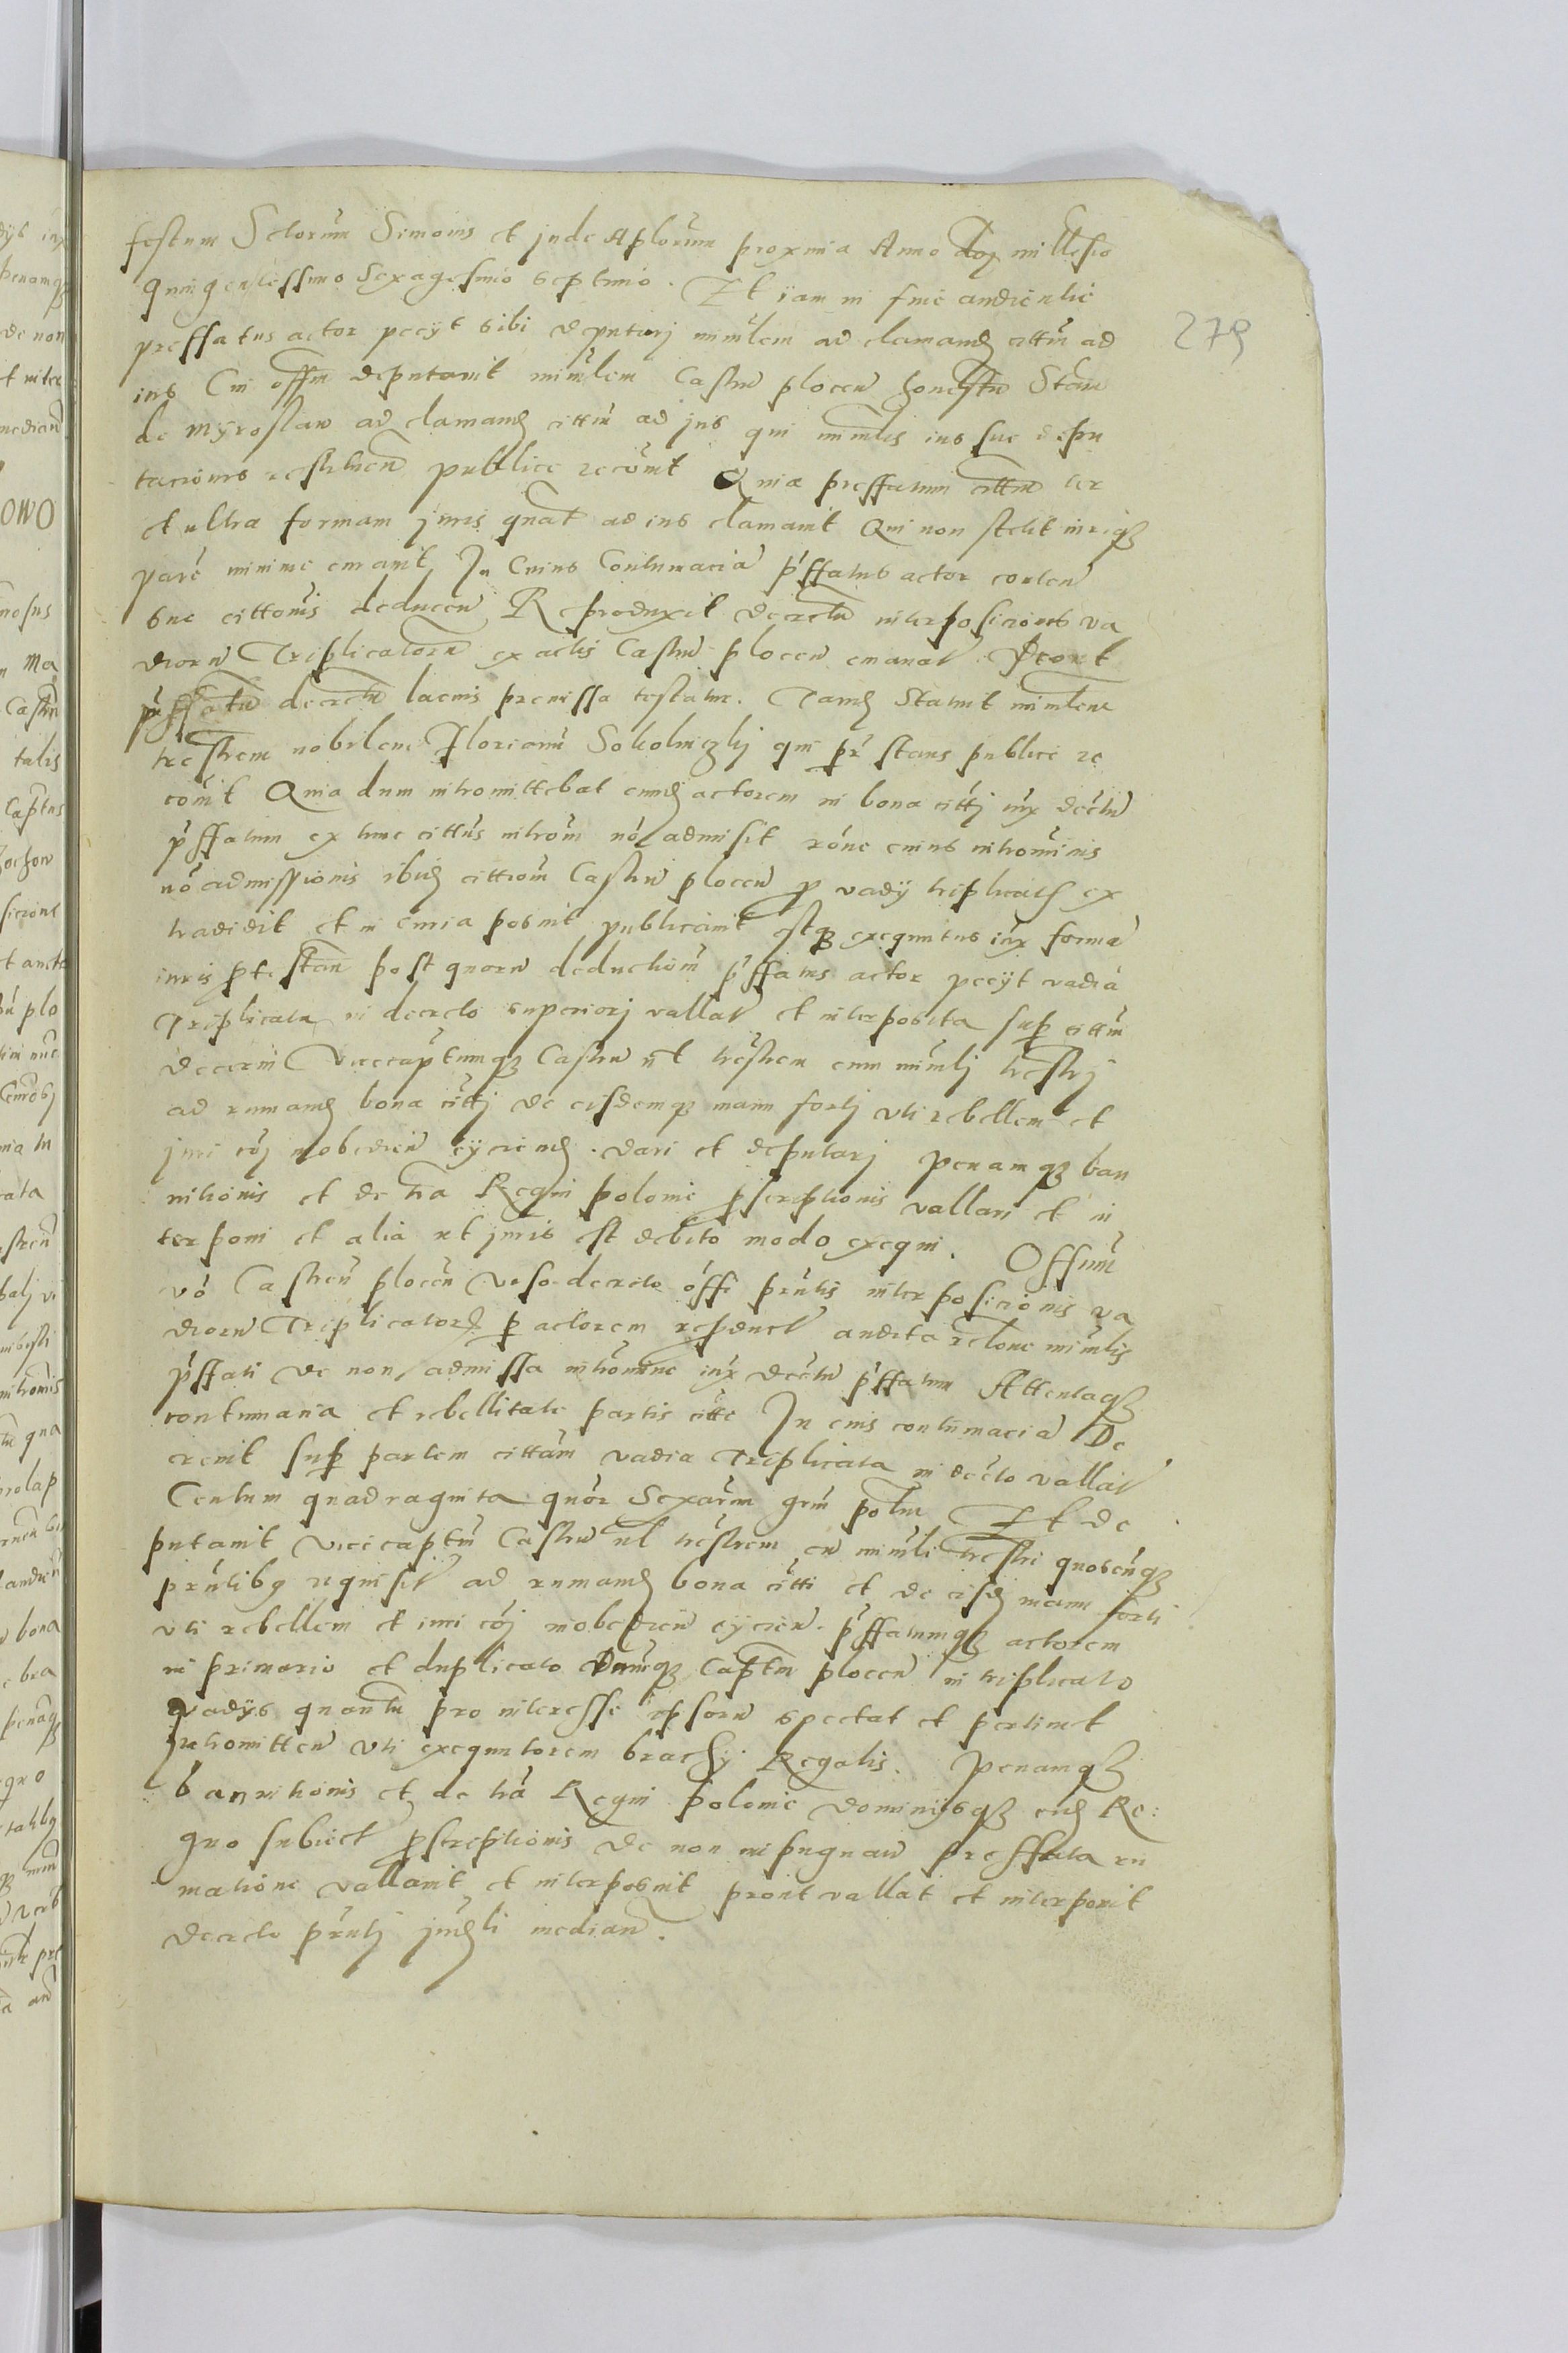 279
festum Sctorum Simonis et Jude Aplorum proxima Anno Dnj millesio
quingentessimo Sexagesimo septimo. Et iam in fine audientie
preffatus actor pecyt sibi deputarj minrlem ad clamand cittm ad
ius Cui offm deputavit minrlem Castrn plocen honestu Stan
de Myroslaw ad clamand cittm ad jus qui minrlis ius sue depu
tacionis restituen publice recout Quia preffatum cittm ter
et ultra formam juris quat ad ius clamavit Qui non stetit iurique
pare minime curavit In Cuius Contumacia pffatus actor conten
sue cittonis deducen Reproduxit decretu interposicionis va
diorn Triplicatorn ex actis Castrn plocen emanat Prout
pffatu decretu lacius premissa testatur. Tand Statuit minrlem
trestrem nobilem Florianu Sokolniczkj qui pr stans publice re
couit Quia dum intromittebat eund actorem in bona cittj iux decrtu
pffatum ex tunc cittus introm no admisit rone cuius intromis
no admissionis ibid cittiom Castrn plocen p vadij triplicat ex
tradidit et in curia posuit publicavit estque exequutus iux forma
iuris ptestan post quorn deductiom pffatus actor pecyt vadia
Triplicata in decreto superiorj vallat et interposita sup cittm
decerni Vicecaptumque Castrn ut trestrem cum minrlj trestrj
ad rumand bona cittj de eisdemque manu fortj uti rebellem et
juri coj inobedien eyciend. dari et deputarj penamque ban
nitionis et de tra Regni polonie pscriptionis vallari et in
terponi et alia ut juris est debito modo exequi. Offium
vo Castren plocen viso decreto offi prntis interposicionis va
diorn Triplicator p actorem repduct audita relone minrlis
pffati de non admissa intromine iux decrtu pffatum Attentaque
contumacia et rebellitate partis citte In cuis contumacia De
crevit sup partem cittam vadia Triplicata in decto vallat
Centum quadraginta quor Sexarm grm poln Et de
putavit vicecaptm Castrn ut trestrem cu minrli trestri quoscuque
prntibus requisit ad rumand bona citti et de eisd manu forti
uti rebellem et iuri coj inobedien eycien. pffatumque actorem
in primario et duplicato Dnumque Captm plocen in triplicato
vadys quantu pro interesse ipsorn spectat et pertinet
intromitten uti exequutorem brachij Regalis. penamque
bannitionis et de tra Regni polonie dominijsque eid Re:
gno subiect pscriptionis de non inpugnan preffata ru
matione vallavit et interposuit prout vallat et interponit
decreto prntj judli median.